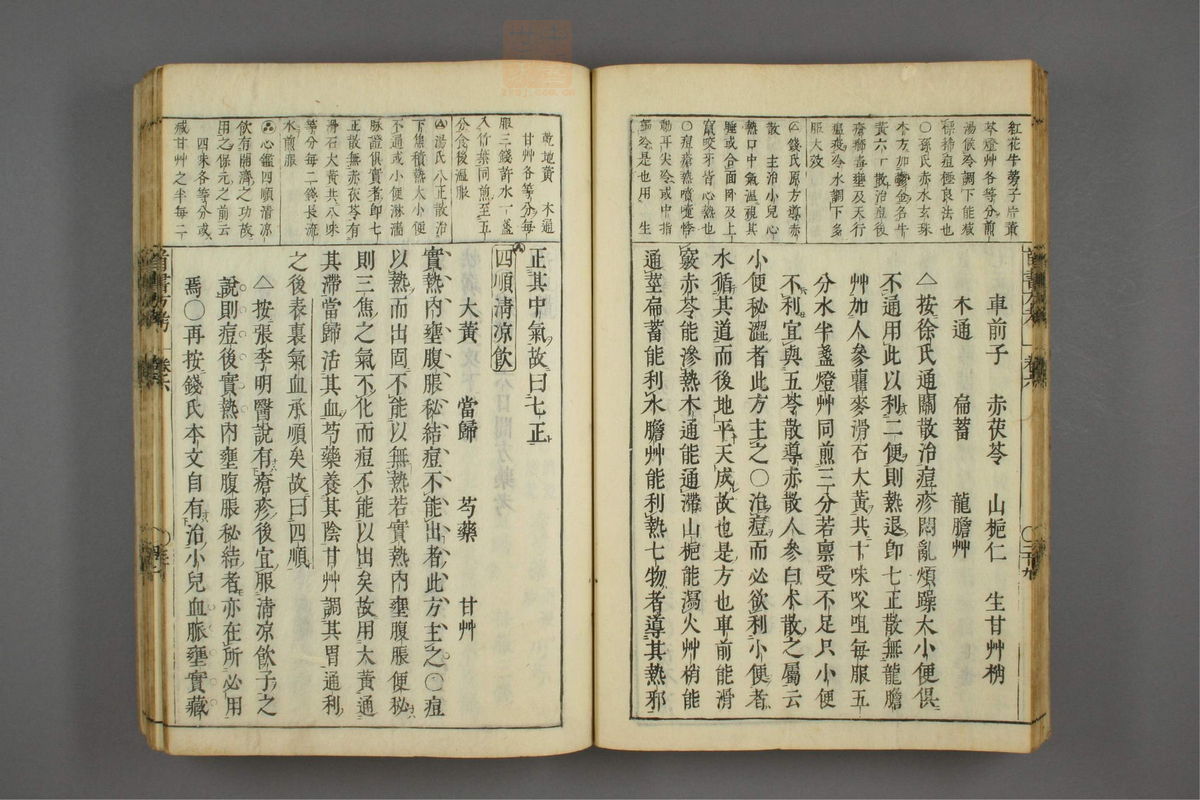 紅花牛蒡子片黃
芩燈艸各等分煎
湯候冷調下能減
標諸痘極良法也
○孫氏赤水玄珠
本方加鬱金名牛
黃六一散治痘後
瘡癤毒壅及天行
瘟疫冷水調下多
服大效
錢氏原方導赤
散 主治小兒心
熱口中氣溫視其
睡或合面卧及上
竄咬牙皆心熱也
○痘瘡熱噴嚏悸
動耳尖冷或中指
獨冷是也用 生
車前子 赤茯苓 山梔仁 生甘艸梢
木通 萹蓄 龍膽艸
△按徐氏通關散治痘疹悶亂煩躁大小便俱
不通用此以利二便則熱退卽七正散無龍膽
艸加人參瞿麥滑石大黃共十味㕮咀每服五
分水半盞燈艸同煎三分若禀受不足只小便
不利宜與五苓散導赤散人參白朮散之屬云
小便秘澀者此方主之○治痘而必欲利小便者
水循其道而後地平天成故也是方也車前能滑
竅赤苓能滲熱木通能通滯山梔能瀉火艸梢能
通莖萹蓄能利水膽艸能利熱七物者導其熱邪
乾地黃 木通
甘艸各等分每
服三錢許水一盞
入竹葉同煎至五
分食後溫服
湯氏八正散治
下焦積熱大小便
不通或小便淋澁
脉證俱實者卽七
正散無赤茯苓有
滑石大黃共八味
等分每二錢長流
水煎服
心鑑四順清凉
飲有開濟之功故
用之保元之前云
四味各等分或
减甘艸之半每二
正其中氣故曰七正
四順清凉飲
大黃 當歸 芍藥 甘艸
實熱內壅腹脹秘結痘不能出者此方主之○痘
以熱而出固不能以無熱若實熱內壅腹脹便秘
則三焦之氣不化而痘不能以出矣故用大黃通
其滯當歸活其血芍藥養其陰甘艸調其胃通利
之後表裏氣血承順矣故曰四順
△按張季明醫說有瘡疹後宜服清凉飲子之
說則痘後實熱內壅腹脹秘結者亦在所必用
焉○再按錢氏本文自有治小兒血脈壅實藏